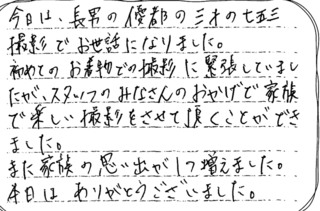 今日は、長男の優都の三才の七五三
撮影でお世話になりました。
初めてのお着物での撮影に緊張していまし
たが、スタッフのみなさんのおかげで家族
で楽しい撮影をさせて頂くことができ
ました。
また家族の思い出が1つ増えました。
本日はありがとうございました。